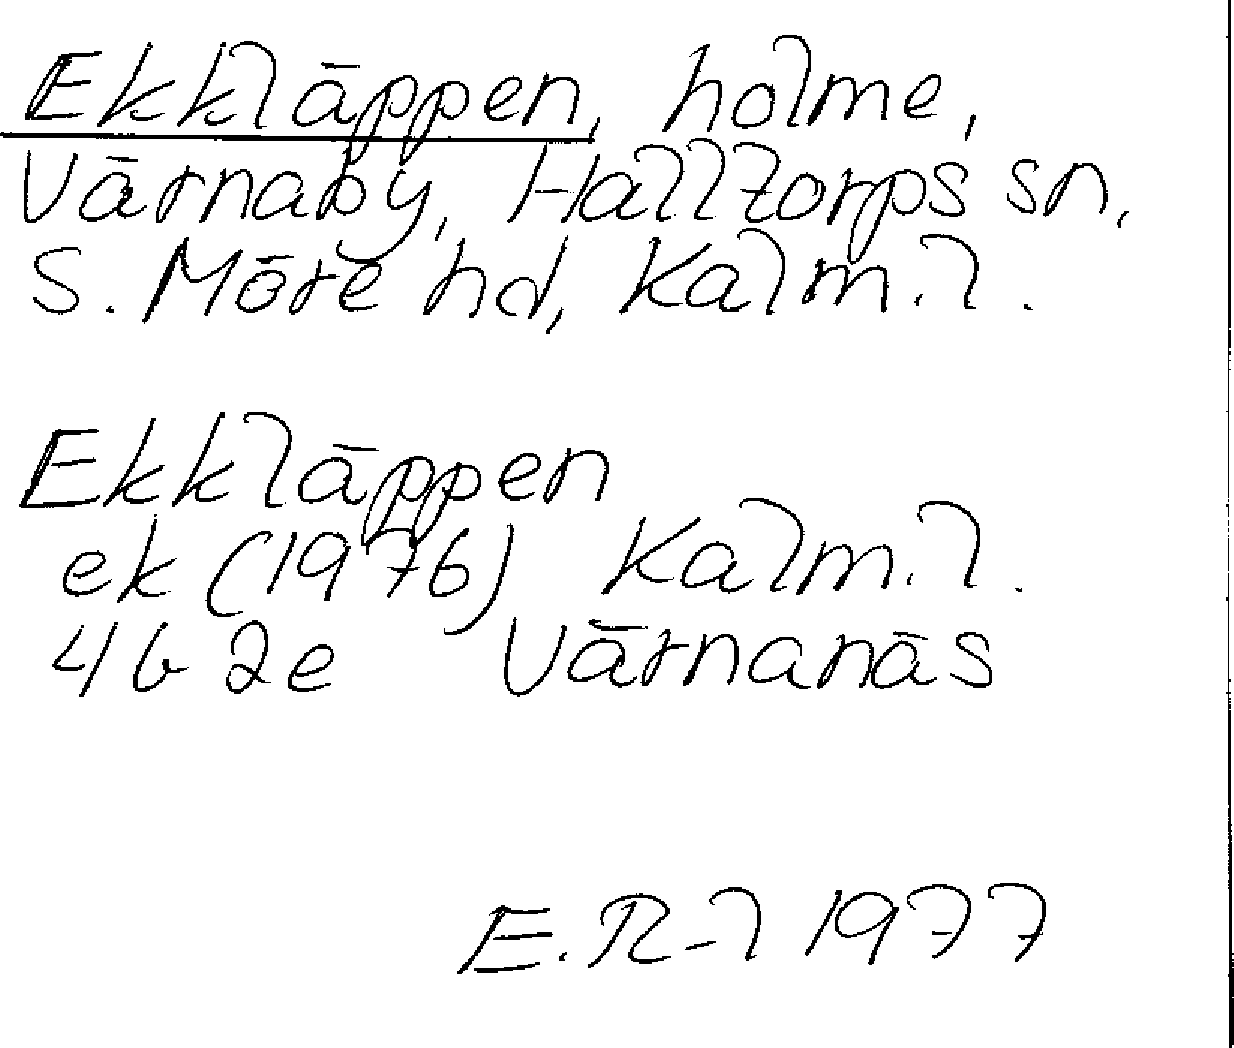 Ekkläppen, holme,
Värnaby, Halltorps sn,
S. Möre hd, Kalm. l.
Ekkläppen
ek (1976) Kalm. l.
4G 2e Värnanäs
E. R-l 1977